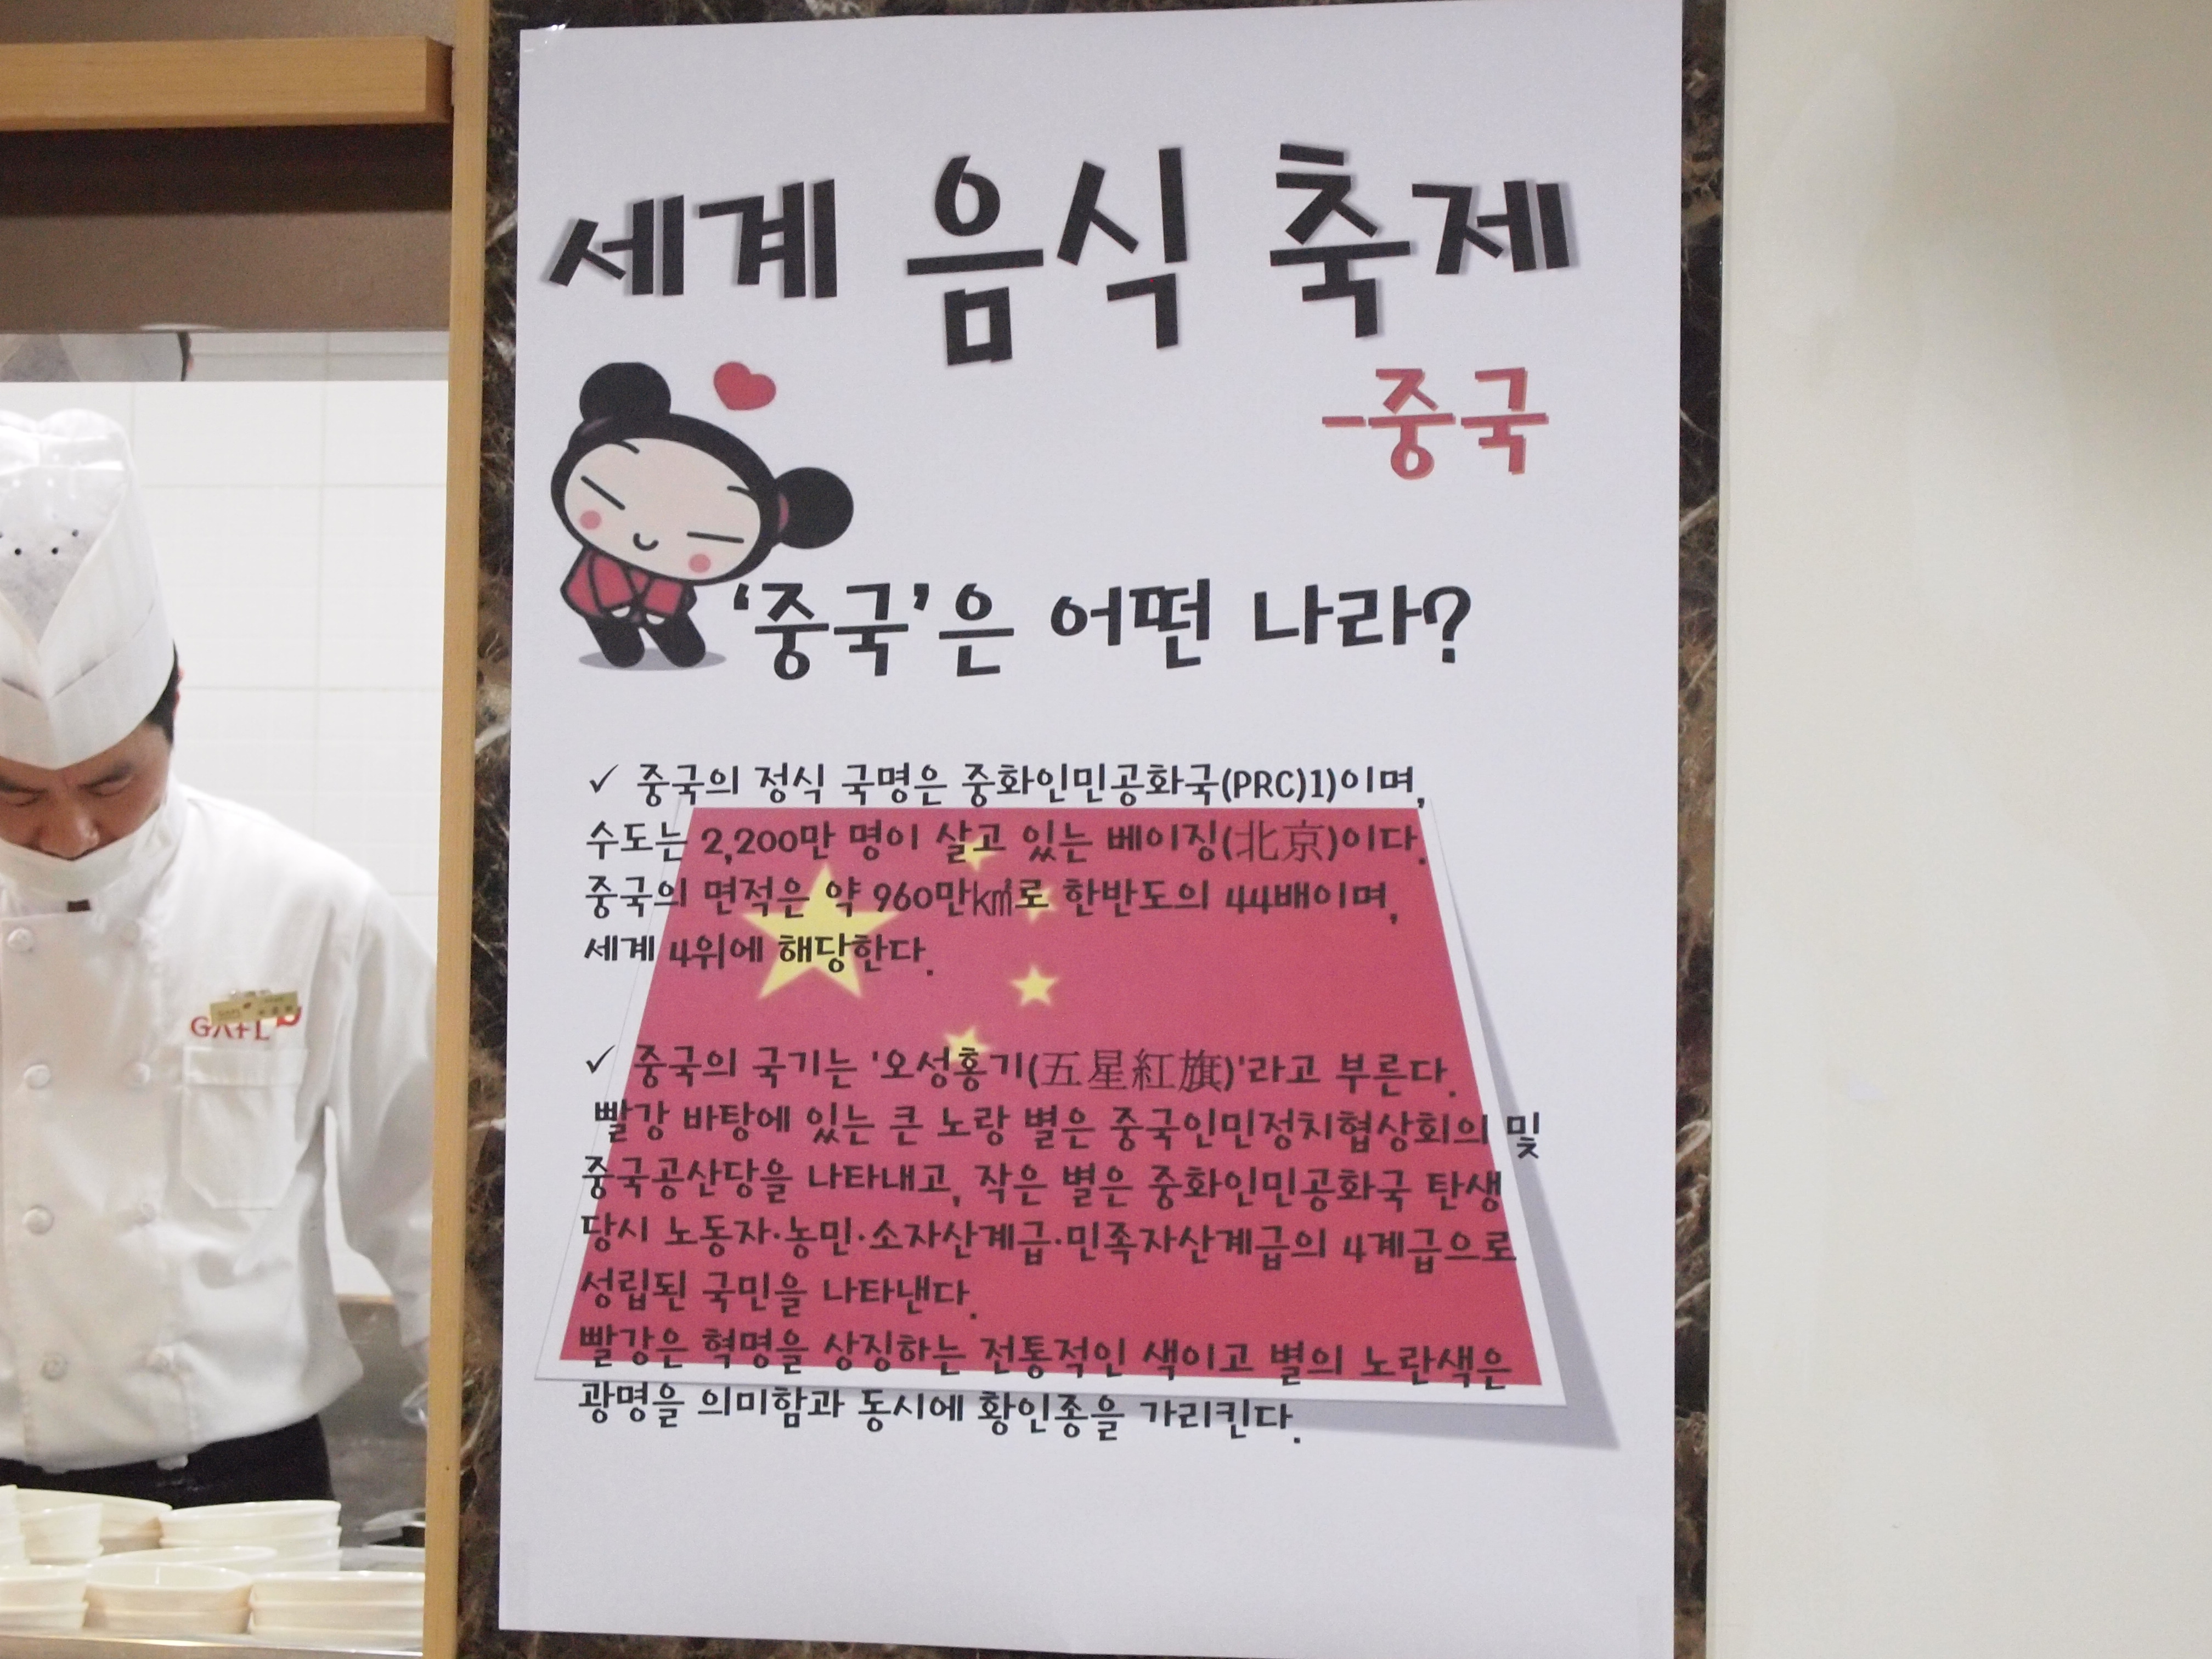 세계 음식 축제
-중국
'중국'은 어떤 나라?
✓ 중국의 정식 국명은 중화인민공화국(PRC)1)이며,
수도는 2,200만 명이 살고 있는 베이징(北京)이다.
중국의 면적은 약 960만㎢로 한반도의 44배이며,
세계 4위에 해당한다.
✓ 중국의 국기는 '오성홍기(五星紅旗)'라고 부른다.
빨강 바탕에 있는 큰 노랑 별은 중국인민정치협상회의 및
중국공산당을 나타내고, 작은 별은 중화인민공화국 탄생
당시 노동자·농민·소자산계급·민족자산계급의 4계급으로
성립된 국민을 나타낸다.
빨강은 혁명을 상징하는 전통적인 색이고 별의 노란색은
광명을 의미함과 동시에 황인종을 가리킨다.